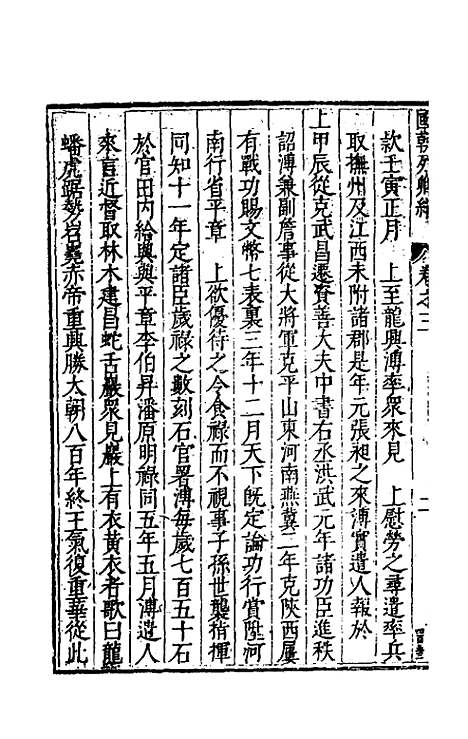 國朝列卿紀 卷之三 二
款壬寅正月 上至龍興溥率衆來見 上慰勞之尋遣率兵
取撫州及江西未附諸郡是年元張昶之來溥實遣人報於
上甲辰從克武昌遷資善大夫中書右丞洪武元年諸功臣進秩
詔溥兼副詹事從大將軍克平山東河南燕冀二年克陝西屢
有戰功賜文幣七表裏三年十二月天下旣定論功行賞陞河
南行省平章 上欲優待之令食祿而不視事子孫世襲指揮
同知十一年定諸臣歲祿之數刻石官署溥每歲七百五十石
於官田內給與與平章李伯昇潘原明祿同五年五月溥遣人
來言近督取林木建昌蛇舌巖衆見巖上有衣黃衣者歌曰龍
蟠虎踞勢岧嶤赤帝重興勝大朝八百年終王氣復重華從此